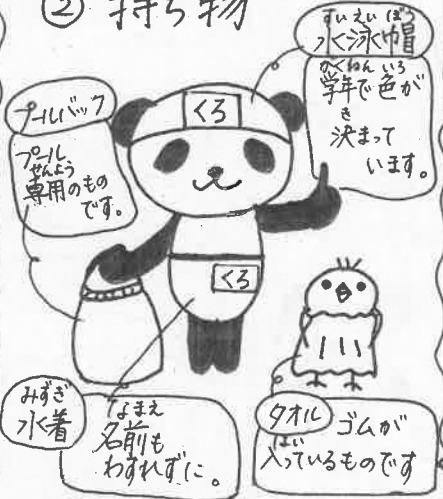 ② 持ち物
すいえいぼう
水泳帽
がくねん いろ
学年で色が
き
決まって
います。
プールバック
プール
せんよう
専用のもの
です。
くろ
くろ
みずぎ
水着
なまえ
名前も
わすれずに。
タオル
ゴムが
はい
入っているものです